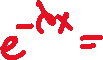 e^{-λx} =